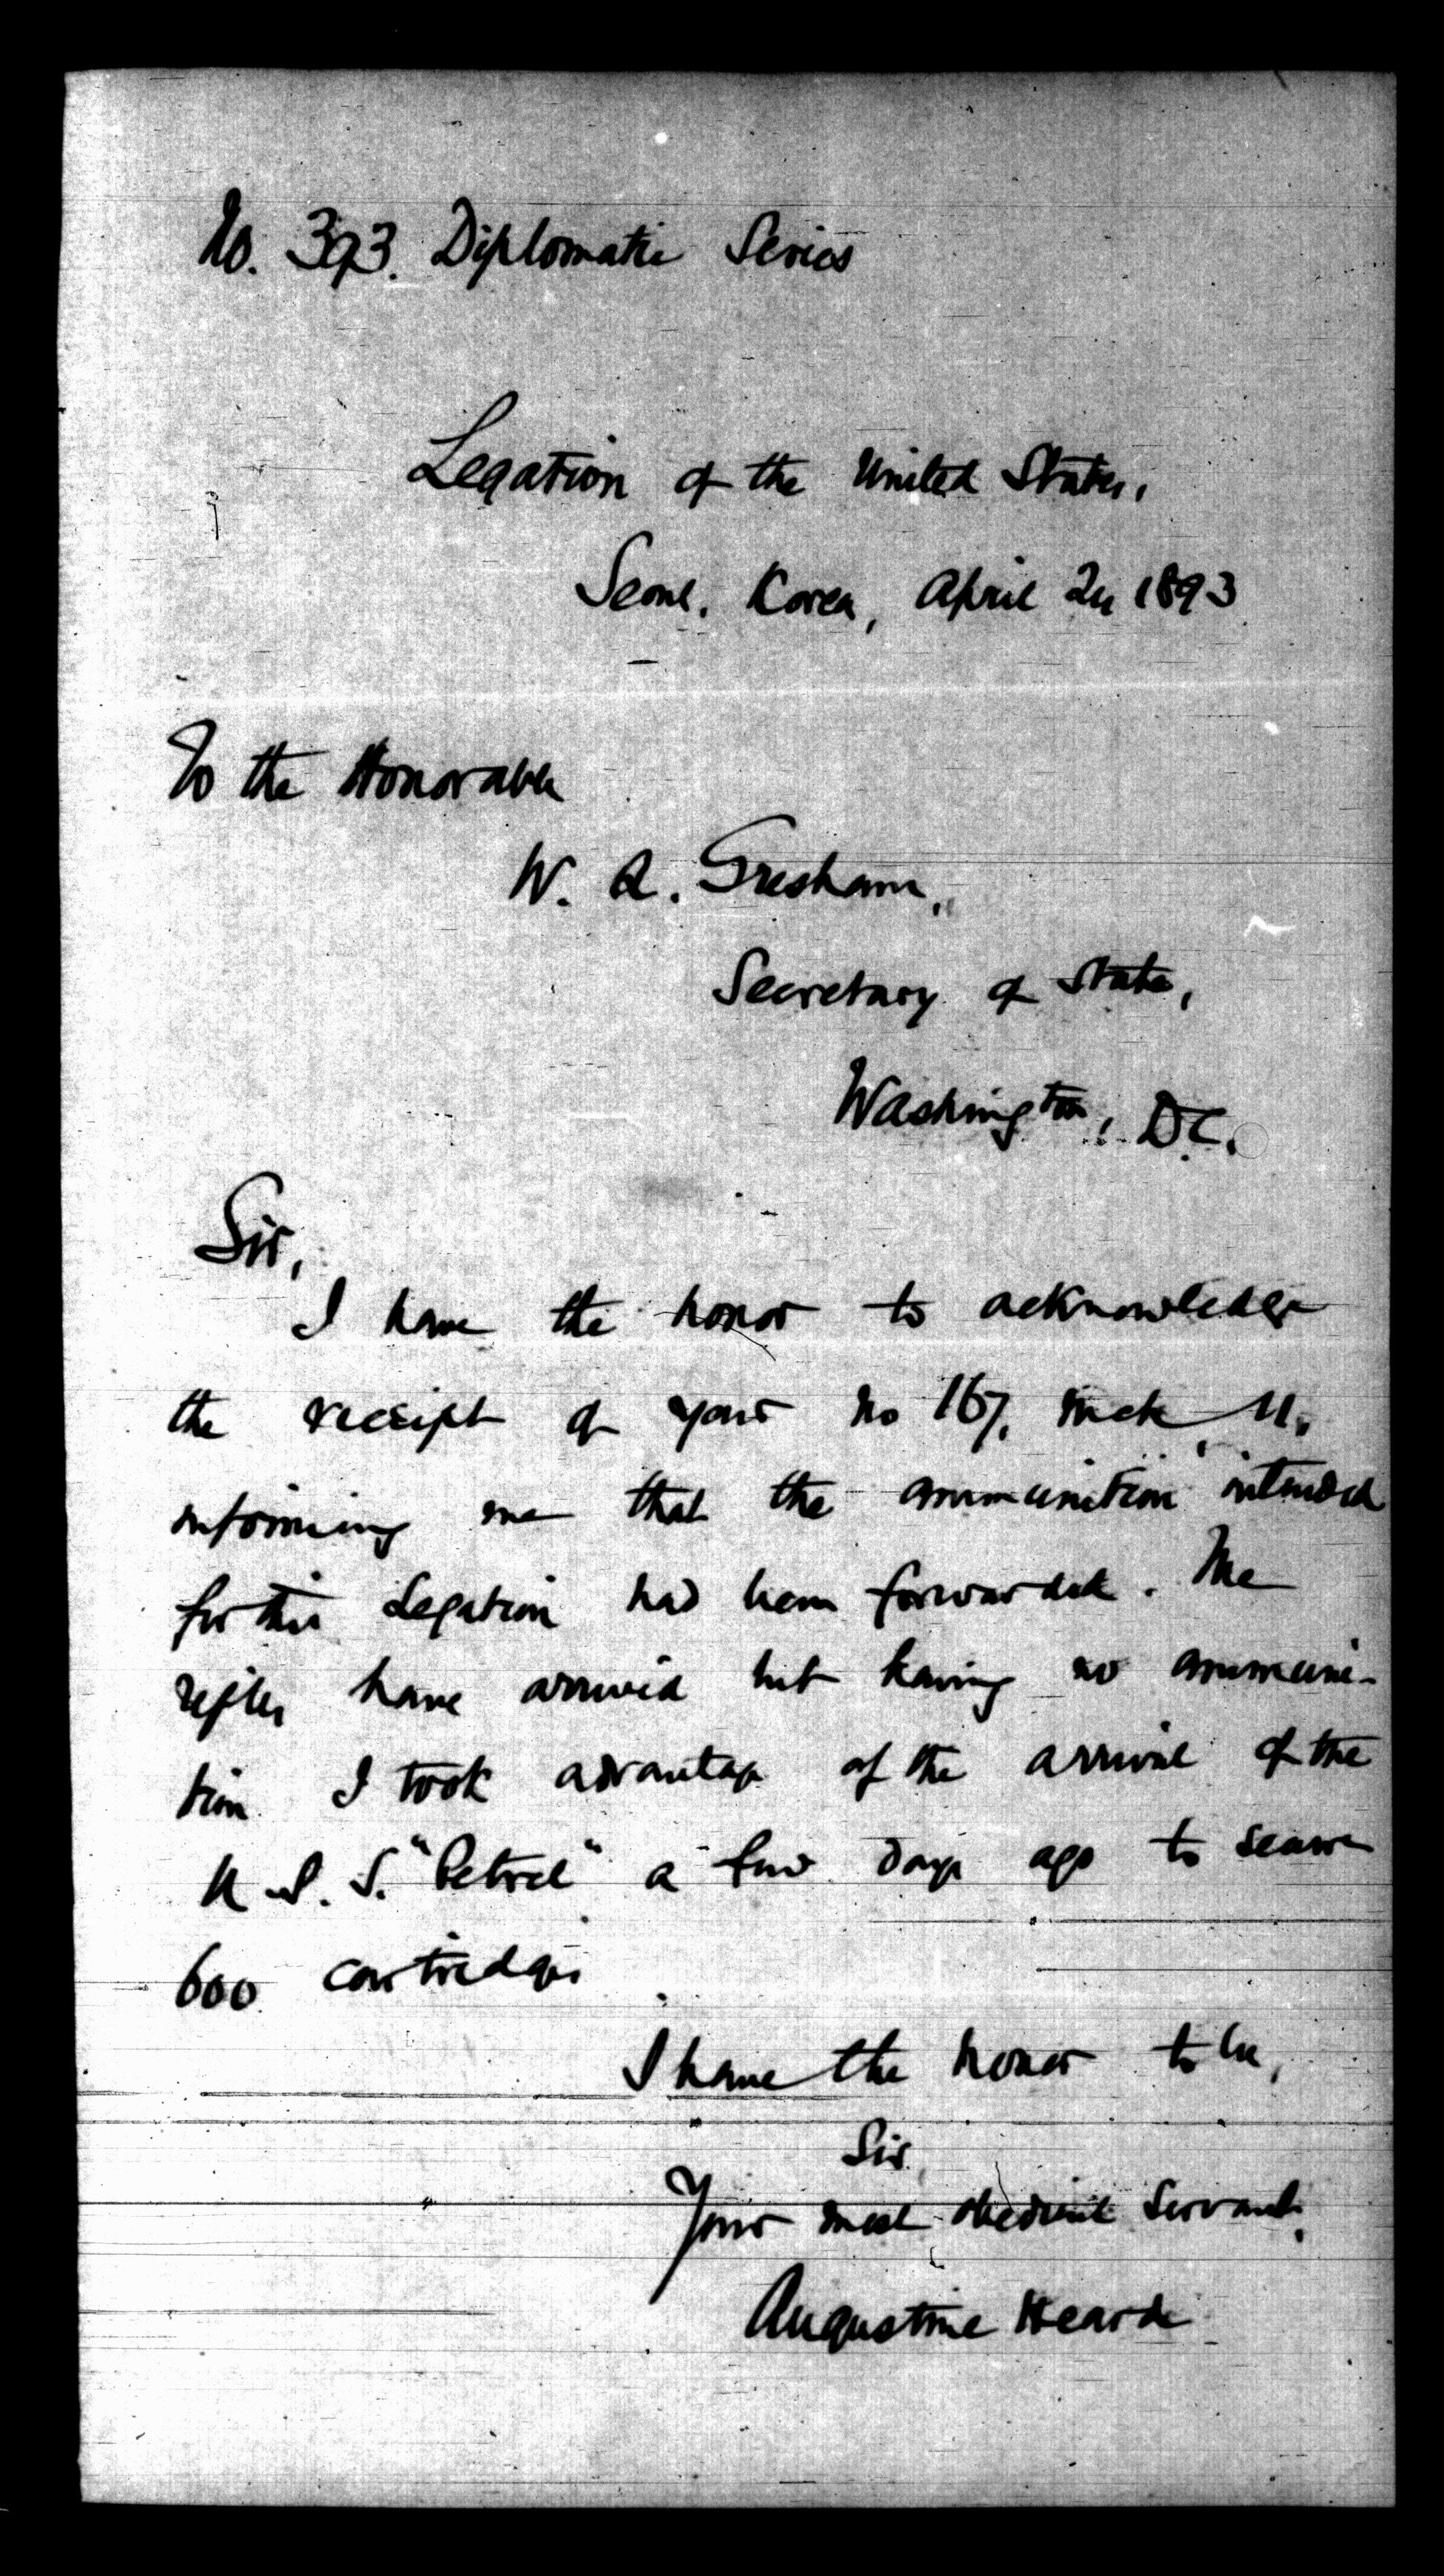 No. 393. Diplomatic Series
Legation of the United States,
Seoul, Korea, April 24 1893
To the Honorable
W. Q. Gresham,
Secretary of State,
Washington, D.C.
Sir,
I have the honor to acknowledge
the receipt of your No 167, March 11,
informing me that the ammunition intended
for this Legation had been forwarded. The
rifles have arrived but having no ammuni-
tion I took advantage of the arrival of the
U. S. S. "Petrel" a few days ago to secure
600 cartridges.
I have the honor to be,
Sir,
Your most obedient Servant,
Augustine Heard